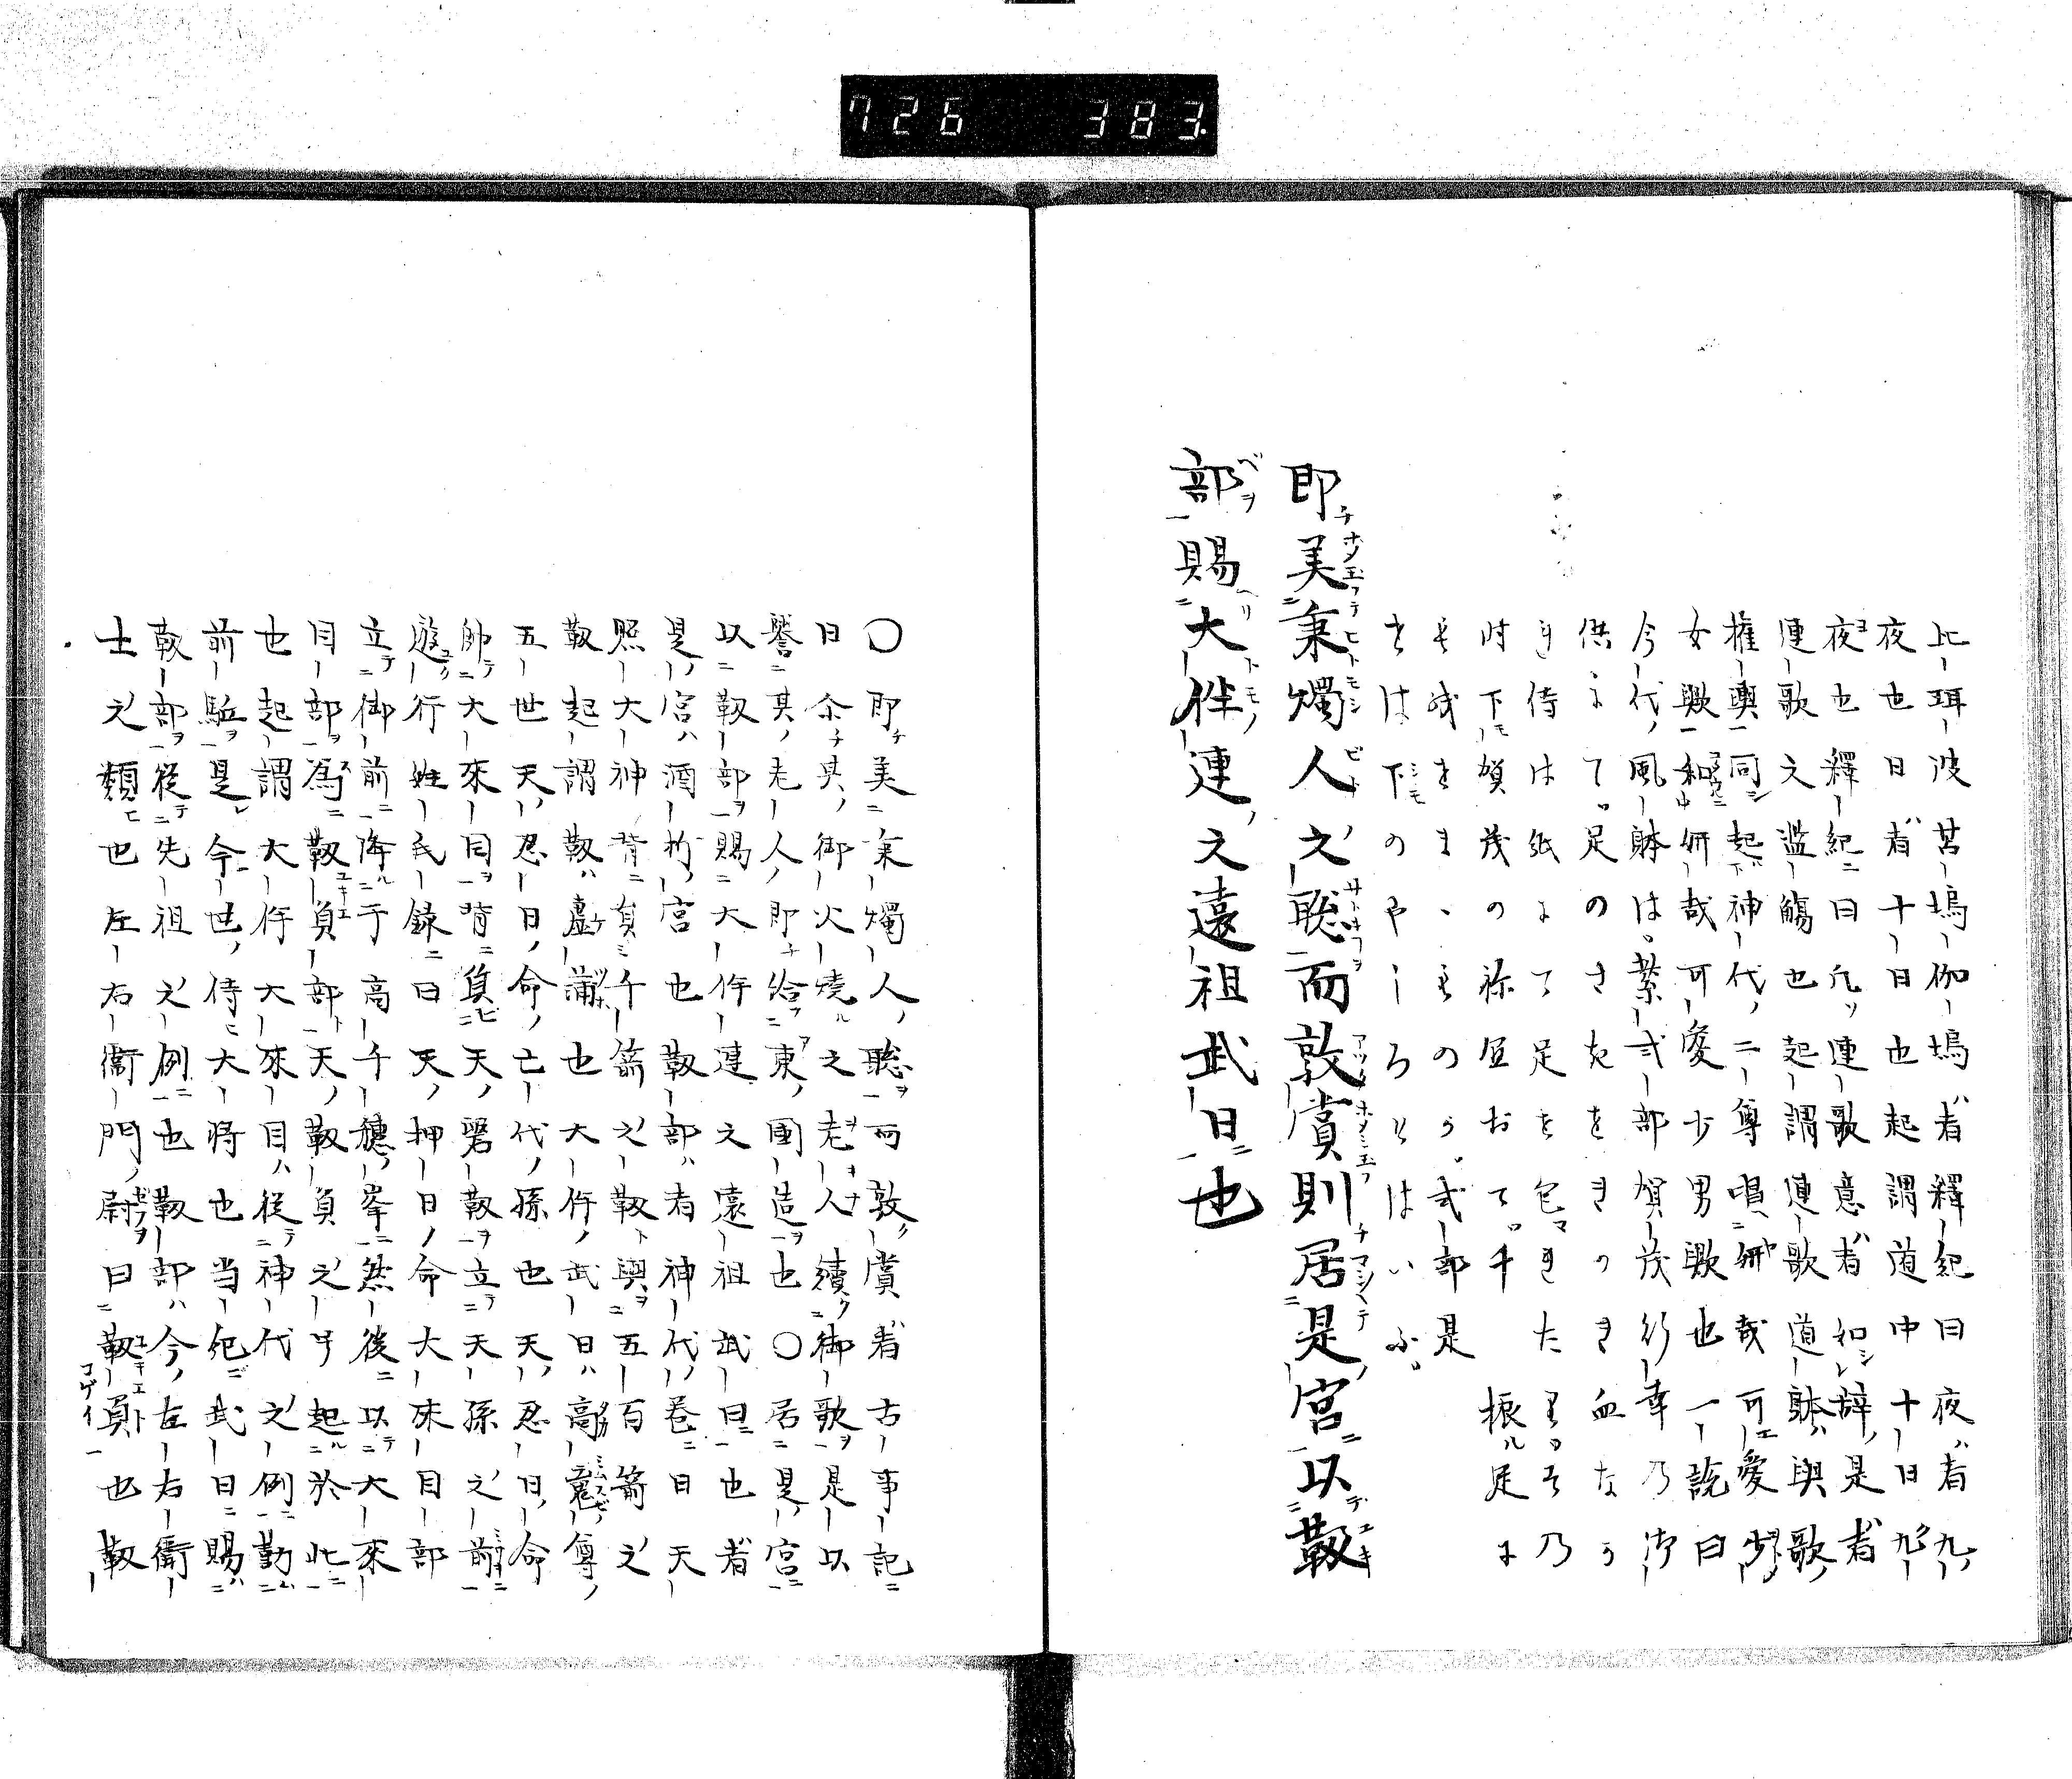 726 383.
比珥波苫塢伽塢者釋紀曰夜者九
夜也日者十日也起謂道中十日九
夜也釋紀曰凡連歌意者和辞是者
連歌之濫觴也起謂連歌道躰與歌
權輿同起神代二尊唱妍哉可愛少
女歟和妍哉可愛少男歟也一説曰
今代風躰は紫式部賀茂行幸乃御
供にて足のさたをきのき血なう
侍は紙にて足を包きたりそ乃
時下賀茂の祢宜おて千振足に
の式部是
は下のやしろとはいふ
即美秉燭人之聡而敦賞則居是宮以靫
部賜大伴連之遠祖武日也
〇即美秉燭人聡而敦賞者古事記
曰尒其御火燒之老人續御歌是以
譽其老人即給東國造也〇居是宮
以靫部賜大伴連之遠祖武日也者
是宮酒折宮也靫部者神代巻曰天
照大神背負千箭之靫與五百箭之
靫起謂靫虚蒲也大伴武日高霊尊
五世天忍日命亡代孫也天忍日命
帥大來目背負天磐靫立天孫之前
遊行姓氏録曰天押日命大来目部
立御前降于高千穂峯然後以大來
目部為靫負部天靫負之号起於此
也起謂大伴大來目從神代之例勤
前駈是今世侍大将也当紀武日賜
靫部從先祖之例也靫部今左右衛
士之類也左右衛門尉曰靫負也靫